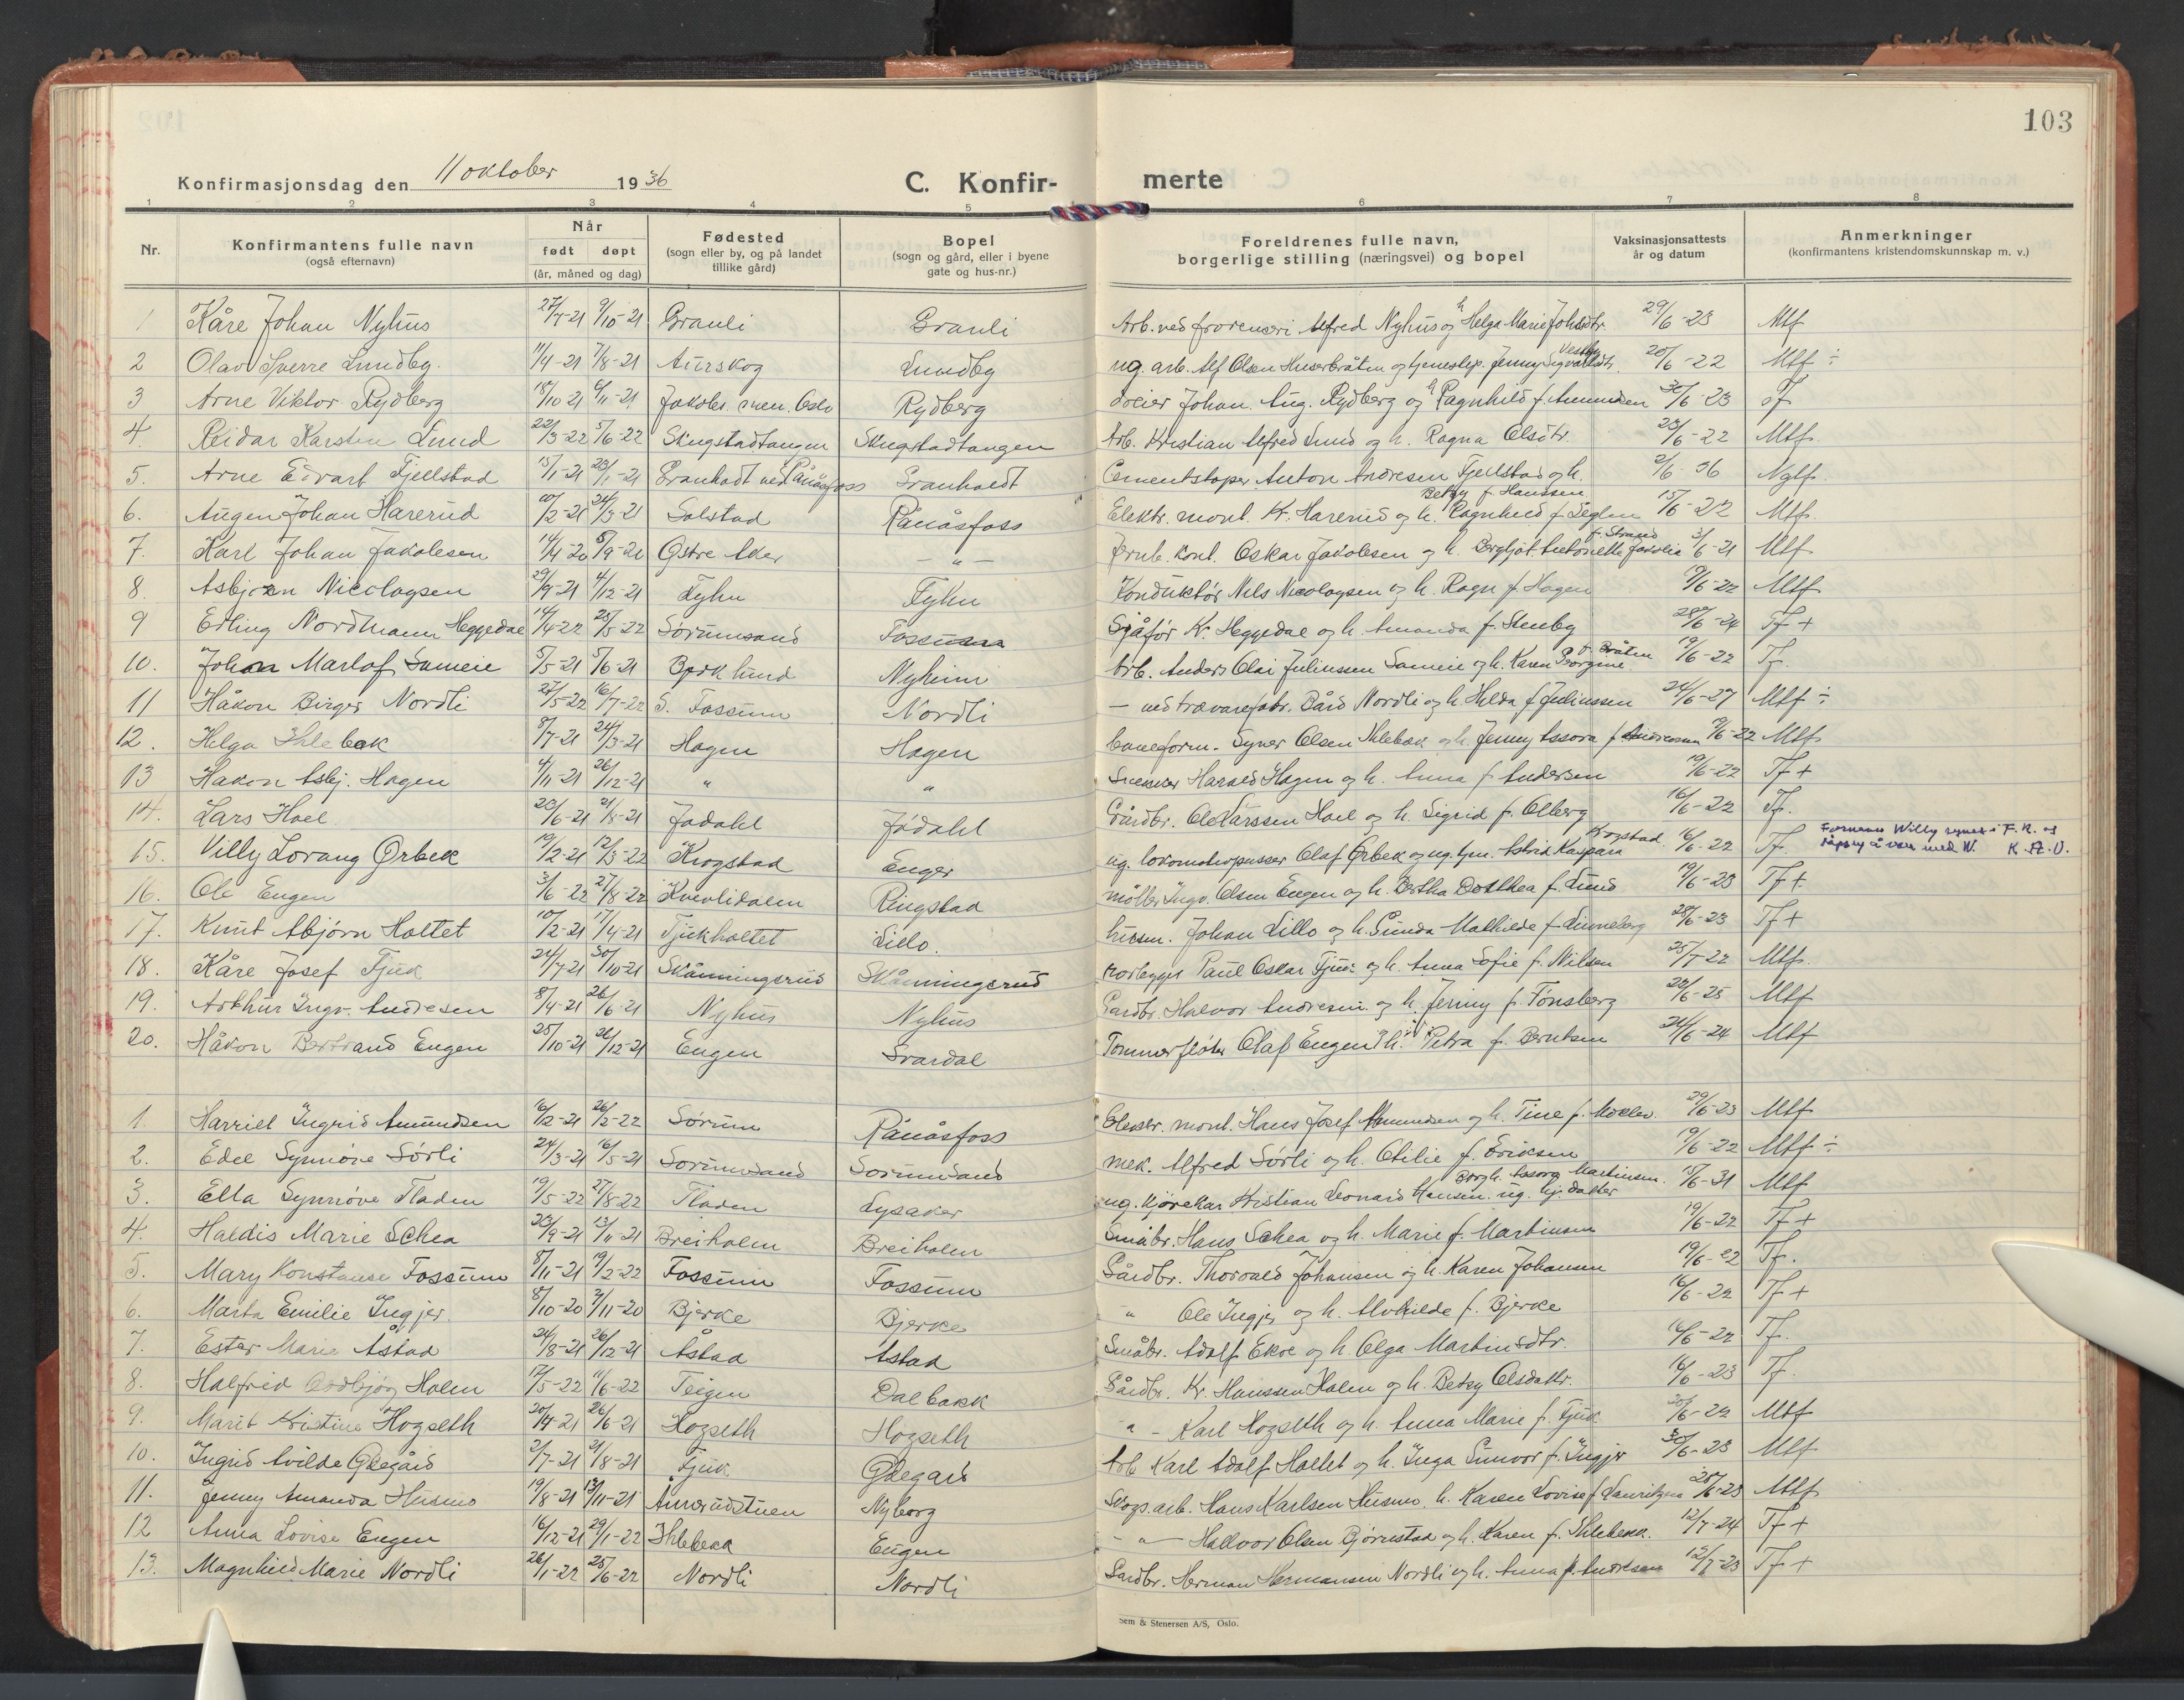 103
Konfirmasjonsdag den 11 oktober 1936 C. Konfir- merte
1 2 3 4 5 6 7 8
Nr. Konfirmantens fulle navn (også efternavn) Når født døpt (år, måned og dag) Fødested (sogn eller by, og på landet tillike gård) Bopel (sogn og gård, eller i byene gate og hus-nr.) Foreldrenes fulle navn, borgerlige stilling (næringsvei) og bopel Vaksinasjonsattests år og datum Anmerkninger (konfirmantens kristendomskunnskap m. v.)
1 Kåre Johan Nyhus 27/7-21 9/10-21 Granli Granli Arb. ved Alfred Nyhus og h Helga Marie Johsdtr. 29/6-23 Mtf
2 Olav Sverre Lundby. 11/4-21 7/8-21 Aurskog Lundby ug. arb. Alf Olsen Huserbråten og tjenestep. Jenny Vestby 20/6-22 Mtf ÷
3 Arne Viktor Rydberg 18/10 21 6/11-21 Jakobs men. Oslo Rydberg Johan. Aug. Rydberg og h Ragnhild f. Amundsen 30/6-23
4. Reidar Karsten Lund 22/3-22 5/6-22 Skugstadtangen Skugstadtangen Arb. Kristian Alfred Lund og h. Ragna Olsdtr. 23/6-22 Mtf.
5. Arne Edvart Fjellstad 15/1-21 23/1-21 Granholt ved Rånåsfoss Granholdt Cementstøper Anton Andresen Fjellstad og h. Betsy f. Hanssen 2/6-36 Ngtf.
6. Augen Johan Harerud 10/2-21 24/3-21 Solstad Rånåsfoss Elektr. mont. Kr. Harerud og h. Ragnhild f. Seglem 15/6-22 Mtf.
7. Karl Johan Jakobsen 14/4-20 5/9-21 Østre Aker - " - Jernb. kont. Oskar Jakobsen og h. Bergljot f. Strand 3/6-21 Mtf
8. Asbjørn Nicolaysen 29/9-21 4/12-21 Fyhn Fyhn Konduktør Nils Nicolaysen og h. Ragn f. Hagen 19/6-22 Mtf
9 Erling Nordmann Heggedal 14/4-22 25/5-22 Sørumsand Fossum Sjåfør Kr. Heggedal og h. Amanda f. Stenby 28/6-24 Tf +
10. Johan Marlof Sameie 5/5-21 5/6-21 Nyheim Arb. Anders Olai Juliussen Sameie og h. Karen Georgine f. Bråten 19/6-22 Tf.
11 Håkon Birger Nordli 27/5-22 16/7-22 S. Fossum Nordli — ved trævarefabr. Bård Nordli og h. Hilda f. Juliussen 24/6-27 Mtf ÷
12. Helge Ihlebæk 8/7-21 24/3-21 Hagen Hagen Baneform. Syver Olsen Ihlebæk og h. Jenny Assora f. Andresen 19/6-22 Mtf
13 Håkon Asbj. Hagen 4/11-21 26/12-21 " " Snekker Harald Hagen og h. Anna f. Andersen 19/6-22 Tf +
14. Lars Hoel 20/6-21 21/8-21 Jødahl Jødahl Gårdbr. Ole Larssen Hoel og h. Sigrid f. Olberg 16/6-22 Tf.
15. Villy Lorang Ørbek 19/2-21 12/3-22 Krogstad Enger ug. lokomotivpusser Olaf Ørbek og ug. tjen. Astrid Kaspara Krogstad 16/6-22 Tf. Fornavn Willy synes i F. R. og å være med W K. A. O.
16. Ole Eugen 3/6-22 27/8-22 Kvevlidalen Ringstad møller Ingv. Olsen Eugen og h. Bertha Dorthea f. Lund 19/6-23 Tf +
17. Knut Abjørn Holtet 10/2-21 17/4-21 Tjukholtet Lillo. husm. Johan Lillo og h. Gunda Mathilde f. Linneberg 28/6-23 Tf +
18. Kåre Josef Tjuk 24/7-21 30/10-21 Skånningsrud Skånningsrud rørlegger Paul Oskar Tjuk og h. Anna Sofie f. Nilsen 25/7-22 Mtf.
19. Arthur Ingv. Andresen 8/4-21 26/6-21 Nyhus Nyhus Gardbr. Halvor Andresen og h. Jenny f. Tønsberg 20/6-25 Mtf
20. Håkon Bertrand Eugen 25/10-21 26/12-21 Eugen Svardal Tømmerfløter Olaf Eugen og h. Petra f. Berntsen 24/6-24 Mtf
1. Harriet Ingrid Amundsen 16/2-21 26/2-22 Sørum Rånåsfoss Elektr. mont. Hans Josef Amundsen og h. Tine f. Møller. 29/6-23 Mtf
2. Edel Synnøve Sørli 24/3-21 16/5-21 Sørumsand Sørumsand mek. Alfred Sørli og h. Otilie f. Eriksen 19/6-22 Mtf ÷
3. Ella Synnøve Fladen 19/5-22 27/8-22 Fladen Lysaker ug. kjørekar Kristian Leonard Hansen. ug. hj. datter Borgh. Aasora Martinsen. 15/6-31 Mtf
4. Haldis Marie Schea 23/9-21 13/11-21 Breiholen Breiholen Småbr. Hans Schea og h. Marie f. Martinsen 19/6-22 Tf +
5. Mary Konstanse Fossum 8/11-21 19/2-22 Fossum Fossum Gårdbr. Thorvald Johansen og h. Karen Johansen 19/6-22 Tf.
6. Marta Emilie Ingjer. 8/10-20 7/11-20 Bjerke Bjerke " Ole Ingjer og h. Alvhilde f. Bjerke 16/6-22 Tf +
7. Ester Marie Åstad 24/8-21 26/12-21 Åstad Åstad Småbr. Adolf Ekre og h. Olga Martinsdtr. 16/6-22 Tf.
8. Halfrid Oddbjørg Holen 17/5-22 11/6-22 Teigen Dalbakk Gårdbr. Kr. Hanssen Holen og h. Betsy Olsdattr. 16/6-23 Tf.
9. Marit Kristine Hogseth 20/4-21 26/6-21 Hogseth Hogseth " - Karl Hogseth og h. Anna Marie f. Tjuk 20/6-22 Mtf
10. Ingrid Alvilde Ødegård 2/7-21 21/8-21 Tjuk Ødegård Arb. Karl Adolf Holtet og h. Inga Gunvor f. Ingjer 30/6-23 Mtf
11. Jenny Amanda Husmo 19/8-21 13/11-21 Amrudstuen Nyborg Skogs.arb. Hans Karlsen Husmo. h. Karen Lovise f. Lauritzen 25/6-23 Mtf
12 Anna Lovise Eugen 16/12-21 29/1-22 Ihlebekk Eugen - " — Hallvor Olsen Bjørnstad og h. Karen f. Ihlebekk. 12/7-24 Tf +
13. Magnhild Marie Nordli 26/1-22 25/6-22 Nordli Nordli Gardbr. Herman Hermansen Nordli og h. Anna f. Andresen 12/7-23 Tf +
Sem & Stenersen A/S, Oslo.